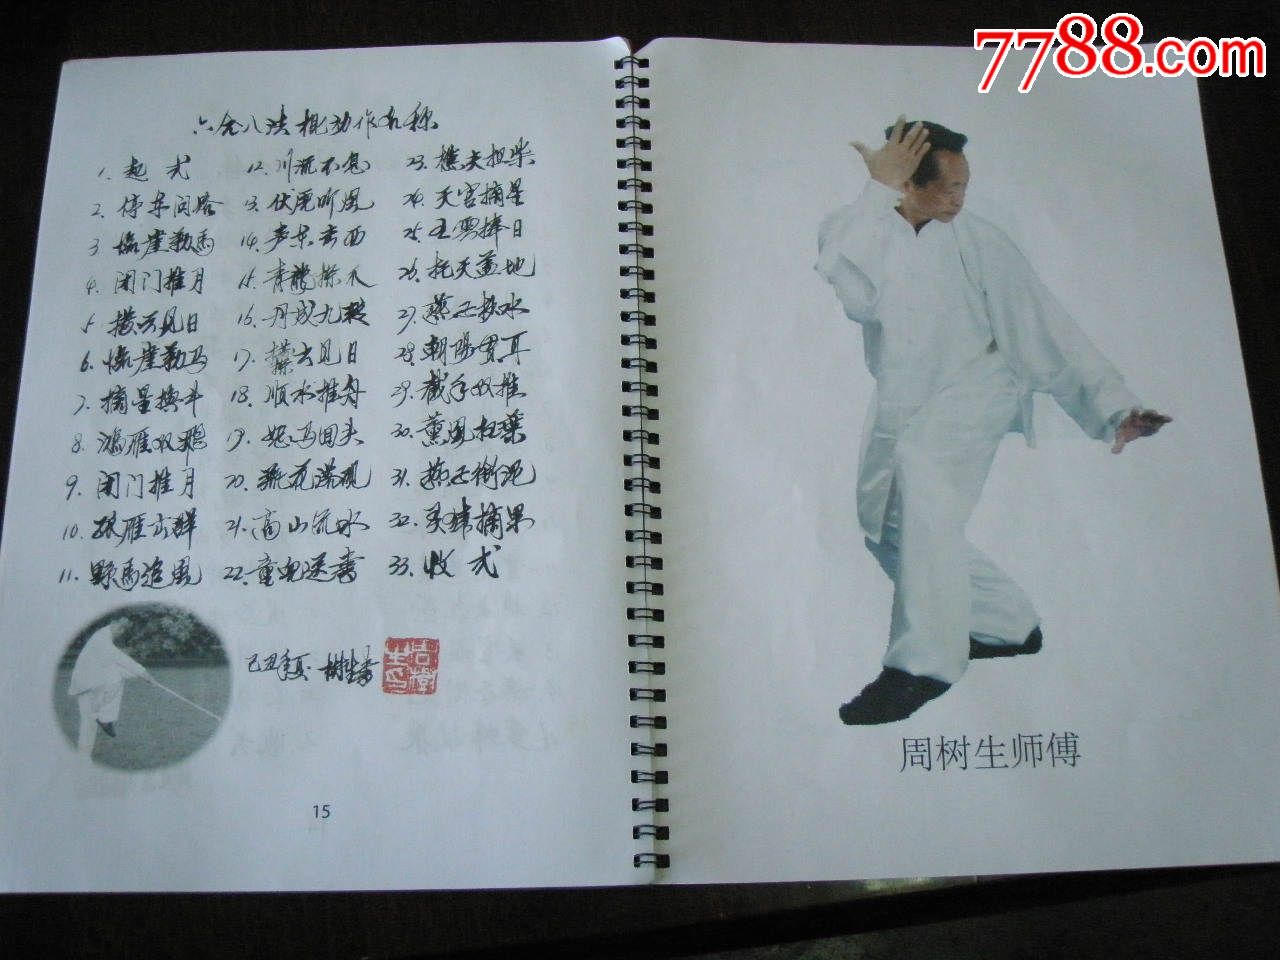 7788.com
六合八法棍动作名称
1. 起式
2. 停车问路
3 临崖勒馬
4. 闭门推月
5 拨云见日
6. 临崖勒马
7. 摘星换斗
8. 鸿雁双飞
9. 闭门推月
10. 雁出群
11. 野馬追风
12. 川流不息
13. 伏虎听风
14. 声东击西
15. 青龍探爪
16. 丹成九转
17. 拨云见日
18. 顺水推舟
19. 回头
20. 
21. 高山流水
22. 童兒送書
23. 樵夫担柴
24. 天官摘星
25. 捧日
26. 托天盖地
27. 燕子抄水
28. 朝陽贯耳
29. 截手双推
30. 薰風扫葉
31. 燕子衔泥
32. 摘果
33. 收式
己丑年夏 樹生書
15
周树生师傅